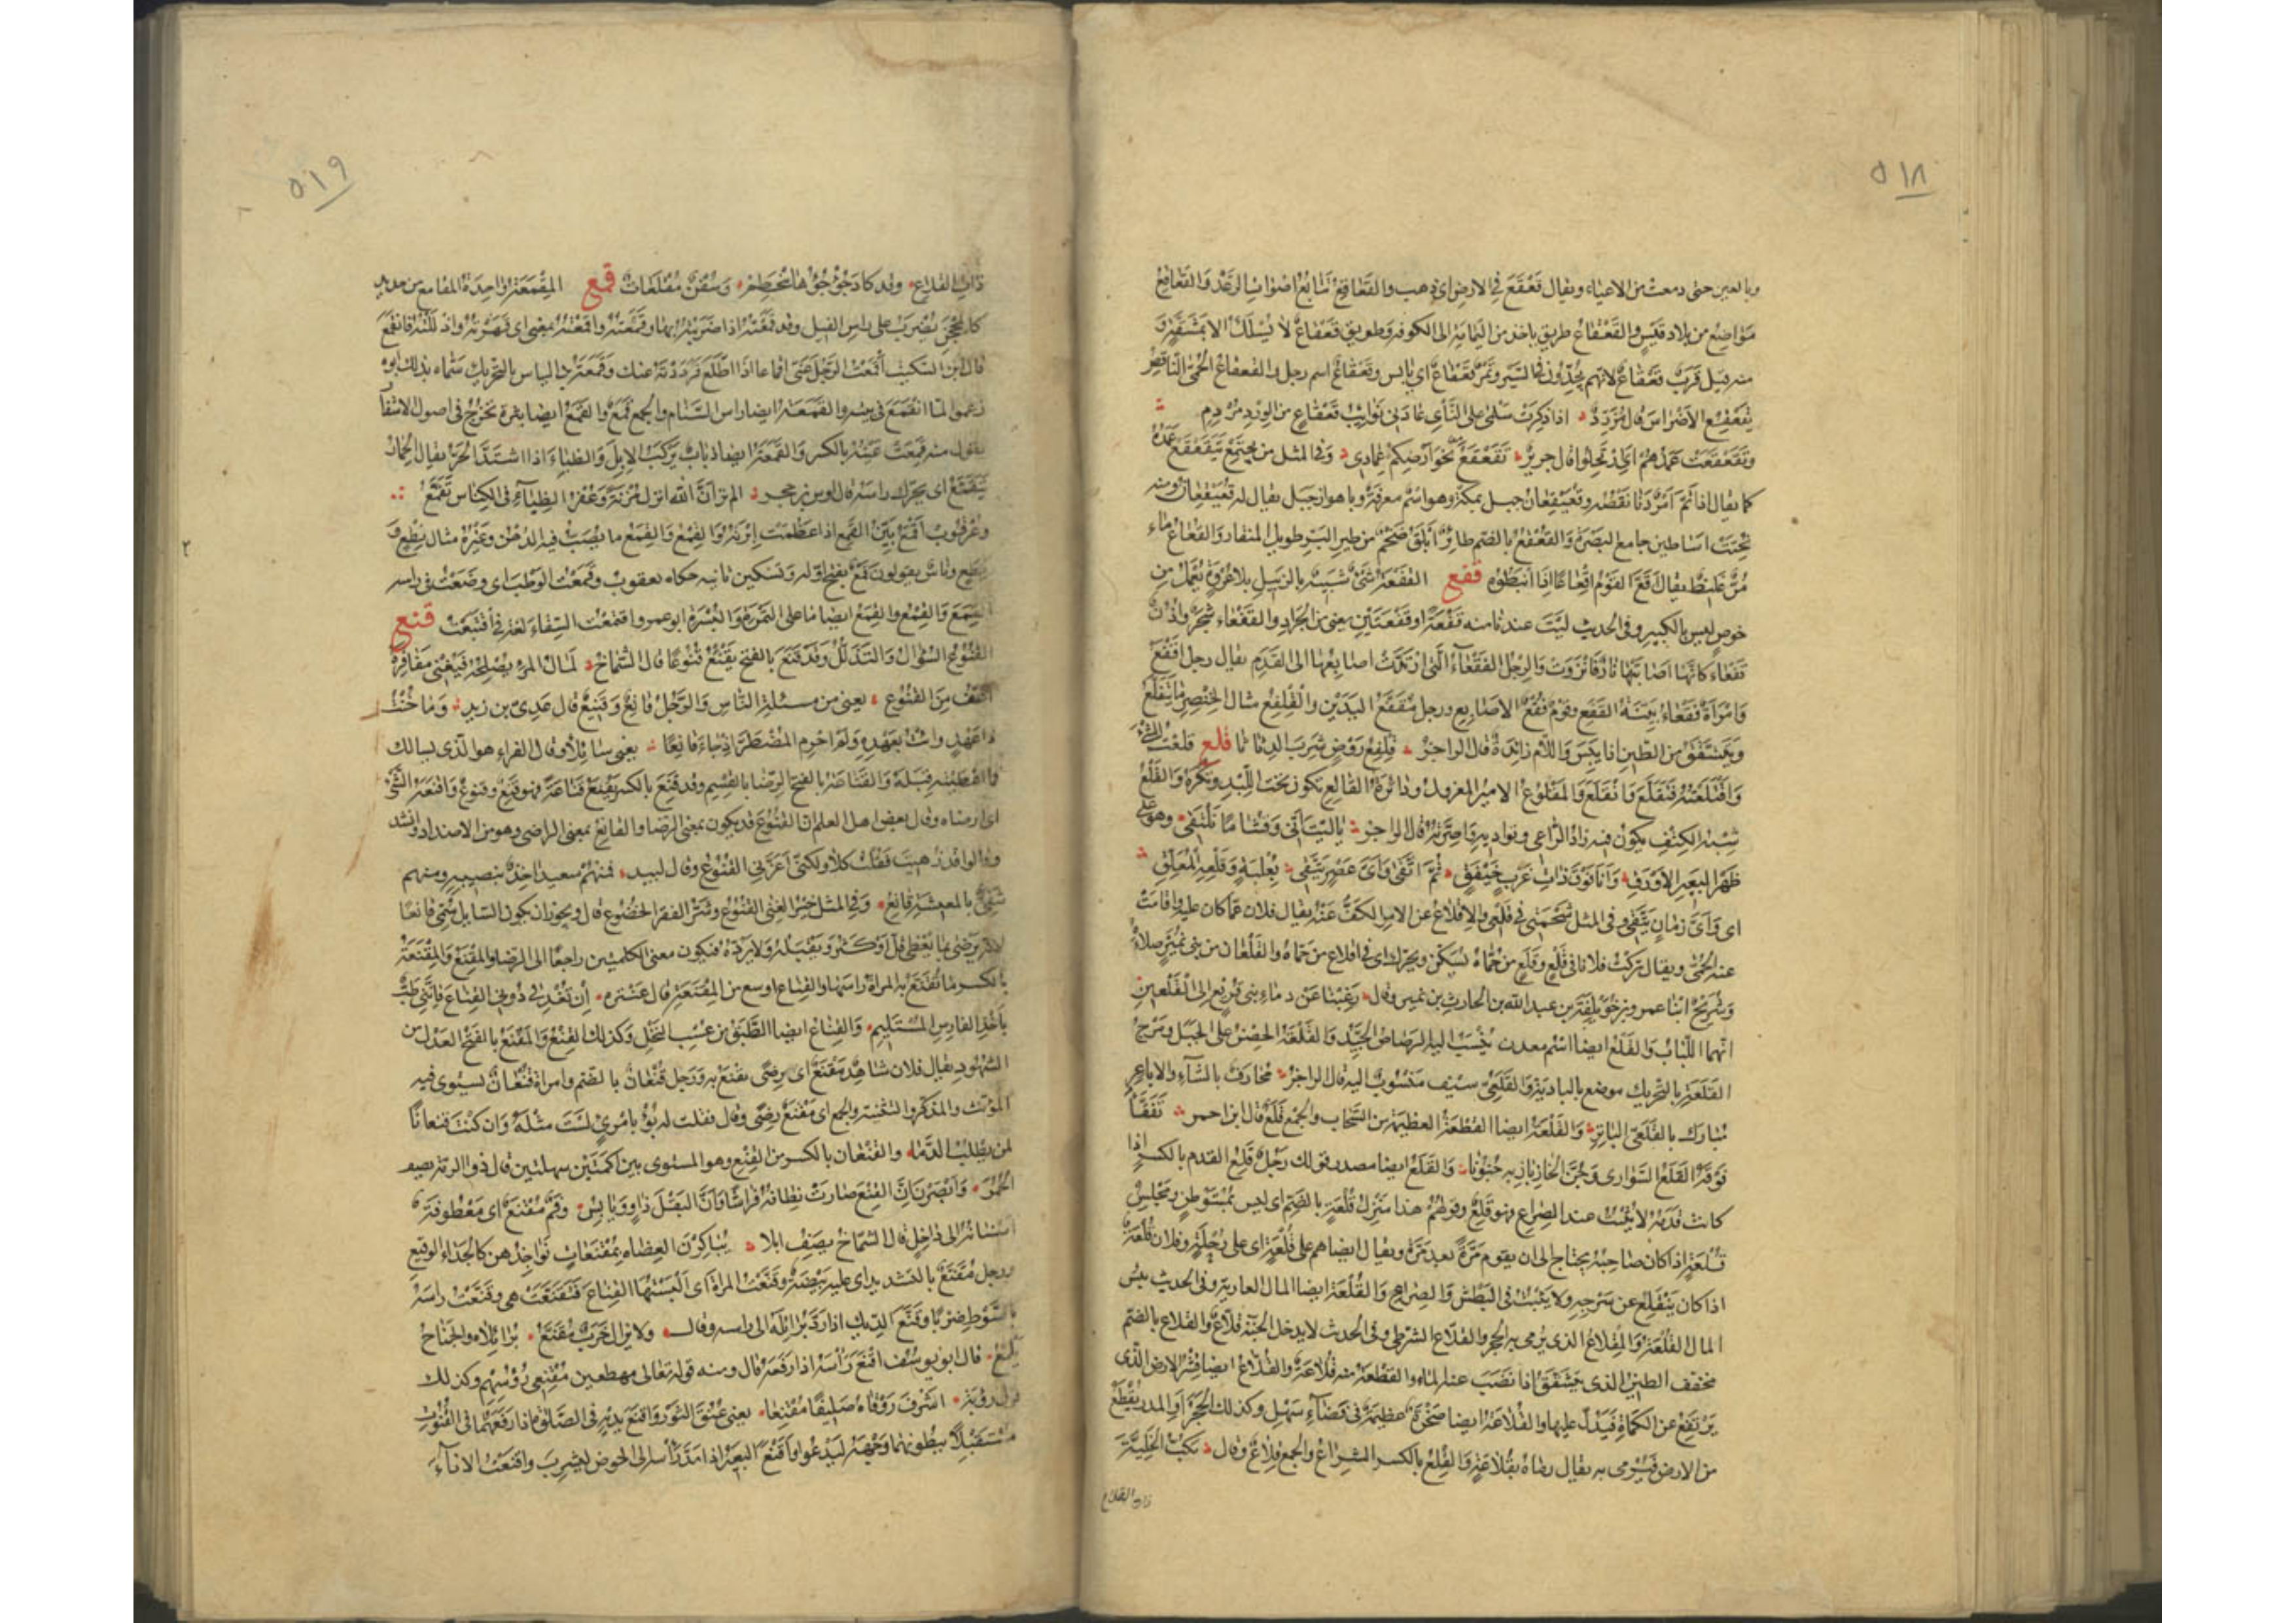 ٥١٨
وبالعين حتى دمعت من الاعياء ويقال قَعْقَعَ في الارض اي ذهب والقَعَاقِعُ تَتَابُعُ اَصْوَاتِ الرَّعْدِ وَالقَعَاقِعُ
مَوَاضِعُ من بلاد قَيْسٍ والقَعْقَاعُ طريق ياخذ من اليمامة الى الكوفه وطريق قَعْقَاعٌ لا يُسْلَكُ الا بمَشَقَّةٍ وَ
منه قيل قَرَبٌ قَعْقَاعٌ لانهم يُجِدّونَ في السَّيرِ وتمرٌ قَعْقَاعٌ اي يابس وقَعْقَاعٌ اسم رجل والقعقاع الحُمّى النّافِضُ
يُقَعْقِعُ الاَضْراسَ قال مُزَرِّدٌ اذا ذُكِرَتْ سَلْمى على النَّأْيِ عَادَنِي قَعْقَاعٍ من الوِرْدِ مُرْدِمِ
وتَقَعْقَعَتْ عَمَدُهُمْ اي ارتحلوا قال جريرٌ تَقَعْقَعَ نَحْوَ اَرْضِكُمُ عِمادِي وفي المثل من يجتمع يَتَقَعْقَعْ عَمَدُهُ
كما يقال اذا تَمَّ اَمْرٌ دَنَا نَقْصُه وقُعَيْقِعَانُ جبل بمكة وهو اسم معرفة وبالاهواز جبل يقال له قُعَيْقِعَانُ ومنه
نُحِتَتْ اساطين جامع البَصْرَةِ وَالقُعْقُعُ بالضم طائِرٌ اَبْلَقُ ضَخْمٌ من طير البَرّ طويل المنقار والقُعَاعُ ماء
مُرٌّ غَلِيظٌ يقال اَقَعَّ القَوْمُ اِقْعَاعًا اِذَا اَنْبَطُوْه قفع القَفْعَةُ شَئٌ شَبِيْهٌ بالزبيل بلا عُرْوَةٍ يُعْمَلُ من
خوص ليس بالكبير وفي الحديث لَيْتَ عندنا منه قَفْعَةً او قَفْعَتَيْنِ يعنى من الجَرادِ والقَفْعَاءُ شجَرٌ واُذُنٌ
قَفْعَاءُ كانّها اَصَابَتْها نَارٌ فَانْزَوَتْ وَالرِّجْلُ القَفْعَآءُ الَّتى ارْتَدَّتْ اصَابِعُها الى القَدَمِ يقال رجل اقفَعُ
وَامْراَةٌ قَفْعَاءُ بيّنَةُ القَفَعِ وقومٌ قُفْعُ الاصَابِعِ ورجل مُقَفَّعُ اليَدَيْنِ والقِلْفِعُ مثال الخِنْصِرِ مَا يَتَقَلَّعُ
ويَتَشَقَّقُ من الطّين اذا يَبِسَ وَاللّام زائِدَةٌ قال الراجز قِلْفِعُ رَوْضٍ شَرِبَ الدِثَاثَا قلع قَلَعْتُ الشَّئَ
وَاقْتَلَعْتُهُ فَتَقَلَّعَ وَانْقَلَعَ وَالمَقْلُوعُ الامير المعزول ودائرَةُ القَالِعِ تكون تحت اللِّبْدِ وتُكْرَهُ وَالقَلْعُ
شِبْهُ الكِنْفِ يكون فيه زادُ الرَّاعِى وتَوَادِيهِ وَاَصِرَّتُه قال الراجز يَا لَيْتَ اَنِّى وَقُشَامًا نَلْتَقِى وهو على
ظَهْرِ البَعِيرِ الاَوْرَقِ وَاَنَا فَوْقَ ذَاتِ غَرْبٍ خَيْفَقٍ ثُمَّ اتَّقَى وَاَىَّ عَصْرٍ يَتَّقِى بِعُلْبَةٍ وَقَلْعِهِ المُعَلَّقِ
اى وَاَىَّ زمَانٍ يَتَّقِى وفى المثل شَحْمَتِى فِى قَلْعِى وَالاِقْلاعُ عن الامر الكَفُّ عَنْهُ يقال فلان عمّا كان عليه واَقلعَتْ
عنه الحُمَّى ويقال تركت فلانا فى قَلْعٍ وقَلَعٍ من حُمَّاهُ يُسَكّنُ ويحرّك اى فى اقلاع من حمّاهُ والقَلْعَانِ من بنى نُمَيْرٍ صَلاَءَةُ
وَشُرَيْحٌ ابْنَا عمرو بن خُوَيْلِفَةَ بن عبد الله بن الحارث بن نمير وقال رَغِبْنَا عَنْ دماءِ بنى قُرَيْعٍ اِلى القَلْعَيْنِ
انّهما اللّبَابُ وَالقَلَعُ ايضا اسْم معدن يُنْسَبُ اليه الرَّصاصُ الجيّدُ وَالقَلْعَةُ الحِصْنُ على الجبَل وَمَرْجُ
القَلَعَةِ بالتّحريك موضع بالبادية وَالقَلَعِىُّ سيف مَنْسُوبٌ اليه قال الراجز مُحَارَفٌ بالشَّآءِ والاباعِرِ
مُبَارَكٌ بالقَلَعِىّ البَاتِرِ وَالقَلَعَةُ ايضا القِطْعَةُ العظيمَة من السَّحَاب والجَمْع قَلَعٌ قال ابن احمر تَفَقَّأَ
فَوْقَهُ القَلَعُ السَّوارى وَجُنَّ الخَازِبازِ بِهِ جُنُونَا وَالقَلَعُ ايضا مصدر قولك رَجُلٌ قَلِعُ القدم بالكسر اذا
كانت قَدَمُه لا تَثْبُتُ عند الصِّراع فهو قَلِعٌ وقولُهُمْ هذا مَنْزِلُ قُلْعَةٍ بالضّمّ اى ليس بمُسْتَوْطَنٍ ومَجْلِسُ
قُلْعَةٍ اذا كان صَاحِبُه يحتاج الى ان يقوم مَرَّةً بعد مَرَّةٍ ويقال ايضا هم على قُلْعَةٍ اى على رِحْلَةٍ وفلان قُلَعَةٌ
اذا كان يَنْقَلِعُ عن سَرْجِهِ ولا يَثْبُتُ فى البَطْشِ وَالصِّرَاعِ وَالقُلْعَةُ ايضا المال العارية وفى الحديث بئس
المال القُلْعَةُ وَالمِقْلاعُ الذى يُرْمى به الحجر والقَلّاعُ الشُّرَطِىُّ وفى الحديث لا يدخل الجنّة قَلّاعٌ وَالقُلاعُ بالضّمّ
مخفّف الطين الذى يتشَقَّقُ اذا نَضَبَ عنه الماء والقِطْعَةُ منه قُلَاعَةٌ والقُلَاعُ ايضا قِشْرُ الارض الّذى
يَرْتَفِعُ عن الكَمْاَةِ فيَدُلُّ عليها وَالقُلَاعَةُ ايضا صَخْرَةٌ عظيمَةٌ فى فَضَآءٍ سَهْلٍ وكذلك الحَجَرُ اَوِ المدر يُقْطَعُ
من الارض فيُرْمى به يقال رمَاهُ بقُلَاعَةٍ وَالقِلْعُ بالكسر الشِّرَاعُ والجمع قِلَاعٌ وقال يَكُبُّ الخَلِيَّةَ
ذات القلاع
٥١٩
ذاتَ القِلَاعِ وقد كادَ جُؤْجُؤُهَا يَنْحَطِمْ وَسُفُنٌ مُقْلَعَاتٌ قمع المِقْمَعَةُ وَاحِدَةُ المقامع من حديدٍ
كالمِحْجَنِ يُضْرَبُ على راس الفيل وقد قَمَعْتُه اذا ضَرَبْتُه بها وقَمَعْتُهُ واَقمَعْتُه بمعنى اى قَهَرْتُه وَاذْلَلْتُه فَانْقَمَعَ
قال ابن السّكيت اَقْمَعْتُ الرَّجُلَ عَنِّى اِقْمَاعًا اذَا اطَّلَعَ فَرَدَدْتَهُ عنك وقَمَعَةُ بن الياس بالتحريك سَمّاه بذلك ابوه
زعموا لمّا انْقَمَعَ فى بيته والقَمَعَةُ ايضا راس السَّنَامِ والجمع قَمَعٌ والقَمَعُ ايضا بَثْرَةٌ تخرُجُ فى اصول الاشْفَار
يقول منه قَمِعَتْ عَيْنُهُ بالكسر وَالقَمَعَةُ ايضا ذُبَابٌ يَرْكَبُ الاِبِلَ وَالظِباءَ اذا اشتَدَّ الحَرُّ يقال الحِمَارُ
يَتَقَمَّعُ اى يحرّك راسَهُ قال اوس بن حجر الم تر انَّ الله انزل مُزْنَةً وَعُفْرُ الظِّبَآءِ فى الكِنَاسِ تَقَمَّعُ
وعُرْقوبٌ اَقْمَعُ بَيِّنُ القَمَعِ اذا عَظُمَتْ اِبْرَتُهُ وَالقِمْعُ وَالقِمَعُ ما يُصَبُّ فيه الدُهْنُ وغَيْرُهُ مثال نِطْعٍ وَ
نِطَعٍ وناسٌ يقولون قَمْعٌ بفتح اوّله وتسكين ثانيه حكاه يعقوب وقَمَعْتُ الوَطْبَ اى وضَعْتُ فى راسه
القِمَعَ وَالقِمْعُ والقِمَعُ ايضا ما على التَمْرَةِ وَالبُسْرَةِ ابو عمرو اقتمَعْتُ السِّقَاءَ لغة فى اقْتَبَعْتُ قنع
القُنُوعُ السُؤالُ وَالتَذلُّلُ وقد قَنَعَ بالفتح يَقْنَعُ قُنُوعًا قال الشماخ لَمالُ المرءِ يُصْلِحُه فَيُغْنِى مَفَاقِرَهُ
اَعَفُّ مِنَ القُنُوعِ يعنى من مسئلة النّاسِ وَالرَّجُلُ قانعٌ وقَنِيعٌ قال عَدِىُّ بن زيدٍ وَمَا خُنْتُ
ذا عَهْدٍ واُبْتُ بعَهْدِهِ وَلَمْ اَحْرِمِ المُضْطَرَّ اِذْ جَاءَ قَانِعًا يعنى سَائِلاً وقال الفراء هو الّذى يسالك
فما اعطيته قبله والقَنَاعَةُ بالفتح الرِضَا بالقِسْمِ وقد قَنِعَ بالكسر يَقْنَعُ قَنَاعَةً فهو قَنِعٌ وقَنُوعٌ وَاقنَعَهُ الشَّئُ
اى ارضاه وقال بعض اهل العلم ان القُنُوعَ قد يكون بمعنى الرضا والقانع بمعنى الراضى وهو من الاضداد وانشد
وقالوا قد زُهِيتَ فقُلْتُ كَلَّا ولكنّى اَعَزَّنِى القُنُوعُ وقال لبيد فمنهم سعيد اخِذٌ بنصيبه ومنهم
شَقِىٌّ بالمعيشة قانعُ وفى المثل خير الغِنى القُنُوعُ وشرّ الفقر الخُضُوعُ قال ويجوز ان يكون السّايل سُمّى قانعًا
لانّه يَرْضى بما يُعْطى قَلَّ اَوْ كَثُرَ وَيَقْبَلُهُ ولا يَرُدُّهُ فيكون معنى الكلمتين راجعًا الى الرضا والمِقْنَعُ وَالمِقْنَعَةُ
بالكسر مَا تُقَنِّعُ به المراَةُ راسَهَا والقِنَاعُ اوسع من المِقْنَعَةِ قال عنتره اِنْ تُغْدِفِى دُونِى القِنَاعَ فَاِنَّنِى طَبٌّ
بِاَخْذِ الفَارِسِ المُسْتَلْئِمِ وَالقِنَاعُ ايضا الطَّبَقُ من عُسُبِ النَخْلِ وكذلك القِنْعُ وَالمَقْنَعُ بالفتح العَدْلُ من
الشّهُودِ يقال فلان شَاهِدٌ مَقْنَعٌ اى رِضًى يُقْنَعُ به وَرَجل قُنْعَانٌ بالضّم وامراة قُنْعَانٌ يستوى فيه
المُؤنّث والمذكر والتثنية والجمع اى مَقْنَعٌ رِضًى وقال فقلت له بُؤْ بامْرئٍ لَسْتَ مثْلَهُ وَان كنتَ قُنعانًا
لمن يطلب الدَّمَا والقِنْعَان بالكسر من القِنْعِ وهو المستوى بين اكَمَتَيْنِ سهلتين قال ذو الرمّة يصف
الحُمُرَ وَاَبْصَرْنَ اَنَّ القِنْعَ صَارَتْ نِطَافُهُ فَرَاشًا وَاَنَّ البَقْلَ ذَاوٍ وَيَابِسُ وفَمٌ مُقْنَعٌ اى مَعْطُوفَةٌ
اَسْنَانُهُ الى داخِلٍ قال الشماخ يصف ابلا يُبَاكِرْنَ العِضَاهَ بِمُقْنَعَاتٍ نَوَاجِذُهُنَّ كالحِدَاءِ الوَقِيعِ
ورجل مُقَنَّعٌ بالتشديد اى عليه بَيْضَةٌ وقَنَّعْتُ المراةَ اى اَلْبَسْتُهَا القِنَاعَ فَتَقَنَّعَتْ هى وقَنَّعْتُ راسَهُ
بالسَّوْطِ ضَرْبًا وقَنَّعَ الدّيك اذا ردّ بُرَائِلَهُ الى راسه وقال ولا يزال خَرَبٌ مُقَنَّعُ بُرَائِلَاهُ والجَنَاحُ
يَلْمَعُ قال ابو يوسُف اقْنَعَ رَاْسَهُ اذا رفَعَهُ قال ومنه قوله تعالى مهطعين مُقْنِعِى رُؤُسِهِمْ وكذلك
قول رُؤبة اَشْرَفَ رَوْقَاهُ صَلِيفًا مُقْنَعَا يعنى عُنُقَ الثَّوْرِ وَاقنَعَ يدَيْهِ فى الصّلوةِ اذا رفَعَهُمَا فى القُنُوت
مُسْتَقْبِلاً ببطونهما وَجْهَهُ ليَدْعُوَ وَاَقْنَعَ البَعِيرُ اذا مَدَّ رَاْسَهُ الى الحوض ليشرَبَ وَاقنَعْتُ الاناَءَ